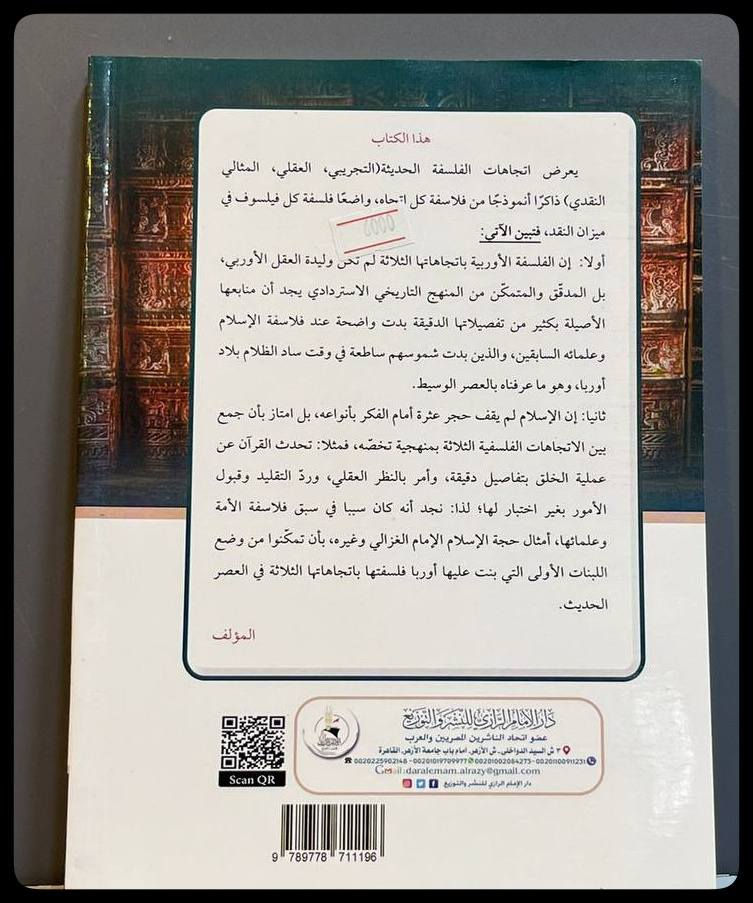 هذا الكتاب
يعرض اتجاهات الفلسفة الحديثة(التجريبي، العقلي، المثالي
النقدي) ذاكرًا أنموذجًا من فلاسفة كل اتجاه، واضعًا فلسفة كل فيلسوف في
ميزان النقد، فتبين الآتي:
0002
أولا: إن الفلسفة الأوربية باتجاهاتها الثلاثة لم تكن وليدة العقل الأوربي،
بل المدقّق والمتمكّن من المنهج التاريخي الاستردادي يجد أن منابعها
الأصيلة بكثير من تفصيلاتها الدقيقة بدت واضحة عند فلاسفة الإسلام
وعلمائه السابقين، والذين بدت شموسهم ساطعة في وقت ساد الظلام بلاد
أوربا، وهو ما عرفناه بالعصر الوسيط.
ثانيا: إن الإسلام لم يقف حجر عثرة أمام الفكر بأنواعه، بل امتاز بأن جمع
بين الاتجاهات الفلسفية الثلاثة بمنهجية تخصّه، فمثلا: تحدث القرآن عن
عملية الخلق بتفاصيل دقيقة، وأمر بالنظر العقلي، وردّ التقليد وقبول
الأمور بغير اختبار لها؛ لذا: نجد أنه كان سببا في سبق فلاسفة الأمة
وعلمائها، أمثال حجة الإسلام الإمام الغزالي وغيره، بأن تمكّنوا من وضع
اللبنات الأولى التي بنت عليها أوربا فلسفتها باتجاهاتها الثلاثة في العصر
الحديث.
المؤلف
دار الإمام الرازي للنشر والتوزيع
عضو اتحاد الناشرين المصريين والعرب
٣ ش السيد الدواخلى - ش الأزهر، أمام باب جامعة الأزهر، القاهرة
0020225902148 - 00201019709977 00201002084273 - 00201100911231
Gmail:daralemam.alrazy@gmail.com
دار الإمام الرازي للنشر والتوزيع
Scan QR
9 789778 711196